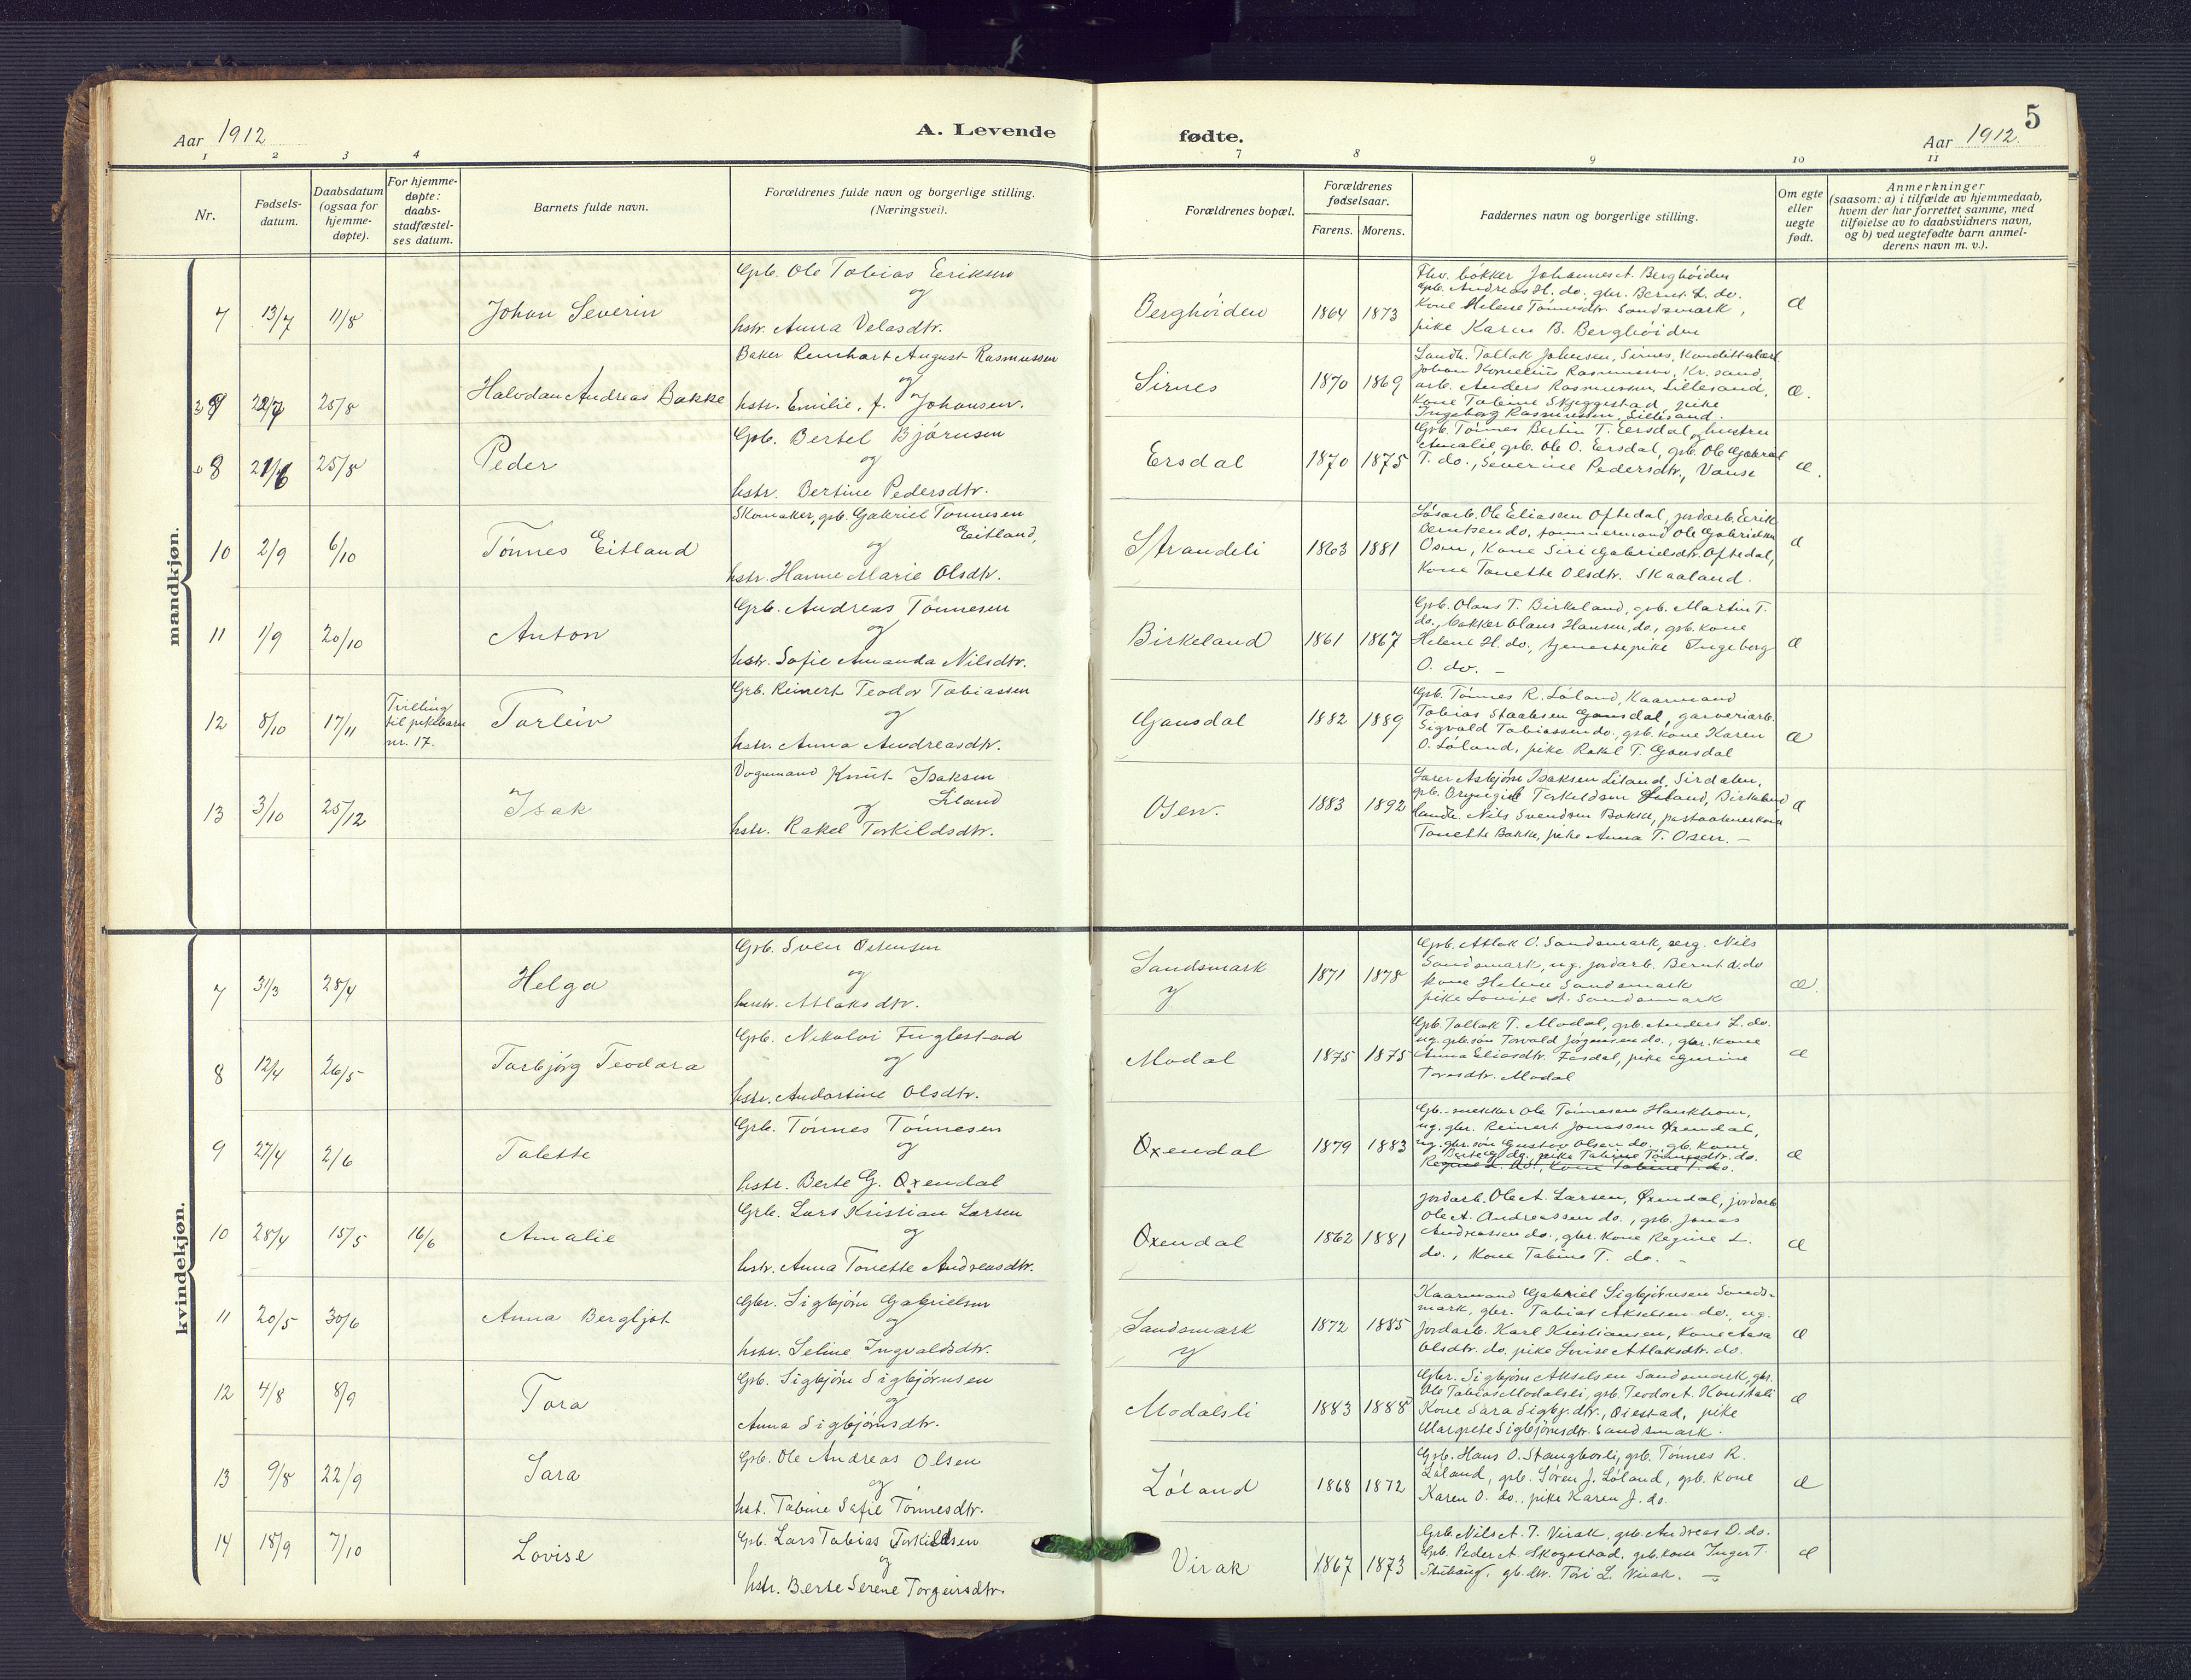 Aar 1912
A. Levende
fødte.
Aar 1912.
5
1 2 3 4 7 8 9 10 11
Nr.
Fødsels-
datum.
Daabsdatum
(ogsaa for
hjemme-
døpte).
For hjemme-
døpte:
daabs-
stadfæstel-
ses datum.
Barnets fulde navn.
Forældrenes fulde navn og borgerlige stilling.
(Næringsvei).
Forældrenes bopæl.
Forældrenes
fødselsaar.
Farens. Morens.
Faddernes navn og borgerlige stilling.
Om egte
eller
uegte
født.
Anmerkninger
(saasom: a) i tilfælde av hjemmedaab,
hvem der har forrettet samme, med
tilføielse av to daabsvidners navn,
og b) ved uegtefødte barn anmel-
derens navn m. v.).
mandkjøn.
7 13/7 11/8 Johan Severin
Gpb. Ole Tobias Eriksen
og
hstr. Anna Velasdtr.
Berghöiden 1864 1873
Fhv. bökker Johannes A. Berghöiden
gpb. Andreas H. do. gbr. Bernt L. do.
Kone Helene Tönnesdtr. Sandsmark,
pike Karen B. Berghöiden
æ
9 22/7 25/8 Halvdan Andreas Bakke
Baker Reinhart August Rasmussen
og
hstr. Emilie. J. Johansen.
Sirnes 1870 1869
Landh. Tollak Johnsen, Sirnes,
Johan Kornelius Rasmussen, Kr. sand,
arb. Anders Rasmussen, Lillesand,
Kone Tobine Skjeggestad, pike
Ingeborg Rasmussen, Lillesand.
æ.
8 21/6 25/8 Peder
Gpb. Bertel Björnsen
og
hstr. Bertine Pedersdtr.
Ersdal 1870 1875
Gpb. Tönnes Bertin T. Eersdal og hustru
Amalie, gpb. Ole O. Eersdal, gpb. Ole Gabriel
T. do., Severine Pedersdtr., Vanse
æ.
10 2/9 6/10 Tönnes Eitland
Skomaker, gpb. Gabriel Tönnesen
Eitland,
og
hstr. Hanne Marie Olsdtr.
Strandeli 1863 1881
Lösarb. Ole Eliassen Oftedal, jordarb. Eerik
Berntsen do, tømmermand Ole Gabrielsen
Osen, Kone Siri Gabrielsdtr. Oftedal,
Kone Tonette Olsdtr. Skaaland.
æ
11 1/9 20/10 Anton
Gpb. Andreas Tönnesen
og
hstr. Sofie Amanda Nilsdtr.
Birkeland 1861 1867
Gpb. Olaus T. Birkeland, gpb. Martin T.
do., bökker Olaus Hansen, do., gpb. kone
Helene H. do., tjenestepike Ingeborg
O. do. -
æ
12 8/10 17/11
Tvilling
til pikebarn
nr. 17.
Torleiv
Gpb. Reinert Teodor Tobiassen
og
hstr. Anna Andreasdtr.
Gausdal 1882 1889
Gpb. Tönnes R. Löland, Kaarmand
Tobias Staalesen Gausdal, garveriarb.
Sigvald Tobiassen do., gpb. kone Karen
O. Löland, pike Rakel T. Gausdal
æ
13 3/10 25/12 Isak
Vognmand Knut Isaksen
og Liland
hstr. Rakel Torkildsdtr.
Osen. 1883 1892
Lærer Asbjörn Isaksen Liland, Sirdalen,
gpb. Bryngiel Torkildsen Liland, Birkeland
Landh. Nils Svendsen Bakke,
Tonette Bakke, pike Anna T. Osen. -
æ
kvindekjøn.
7 31/3 28/4 Helga
Gpb. Sven Ostensen
og
hustr. Atlaksdtr.
Sandsmark
y
1871 1878
Gpb. Atlak O. Sandsmark, serg. Nils
Sandsmark, ug. jordarb. Bernt A. do
kone Helene Sandsmark
pike Lovise A. Sandsmark
æ.
8 12/4 26/5 Torbjörg Teodora
Gpb. Nikolai Fuglestad
og
hstr. Andortine Olsdtr.
Modal 1875 1875
Gpb. Tollak T. Modal, gpb. Anders L. do.
ug. gpb. sön Torvald Jörgensen do., gbr. kone
Anna Eliasdtr. Fasdal, pike Gurine
Toresdtr. Modal
æ
9 27/4 2/6 Talette
Gpb. Tönnes Tönnesen
og
hstr. Berte G. Øxendal
Øxendal 1879 1883
Gpb.-snekker Ole Tönnesen Haukhom,
ug. gbr. Reinert Jonassen Øxendal,
ug. gbr. sön Gustav Olsen do. gb. kone
Berte G. do. pike Tabine Tönnesdtr. do.
Regine L. do., kone Tabine T. do.
æ
10 28/4 15/5 16/6 Amalie
Gpb. Lars Kristian Larsen
og
hstr. Anna Tonette Andreasdtr.
Øxendal 1862 1881
Jordarb. Ole A. Larsen, Øxendal, jordarb
Ole A. Andreassen do., gpb. Jonas
Andreassen do., gbr. Kone Regine L.
do., Kone Tabine T. do. -
æ
11 20/5 30/6 Anna Bergljot
Gbr. Sigbjörn Gabrielsen
og
hstr. Seline Ingvaldsdtr.
Sandsmark
y
1872 1885
Kaarmand Gabriel Sigbjörnsen Sands-
mark, gbr. Tobias Akselsen do., ug.
jordarb. Karl Kristiansen, Kone Aasa
Olsdtr. do. pike Lovise Atlaksdtr. do.
æ
12 4/8 8/9 Tora
Gpb. Sigbjörn Sigbjörnsen
og
Anna Sigbjörnsdtr.
Modalsli 1883 1888
Gbr. Sigbjörn Akselsen Sandsmark, gbr.
Ole Tobias Modalsli, gpb. Teodor A. Konstali
Kone Sara Sigbj. dtr., Öiestad, pike
Margrete Sigbjörnsdtr. Sandsmark.
æ
13 9/8 22/9 Sara
Gpb. Ole Andreas Olsen
og
hst. Tabine Sofie Tönnesdtr.
Löland 1868 1872
Gpb. Hans O. Stangborli, gpb. Tönnes R.
Löland, gpb. Sören J. Löland, gpb. kone
Karen O. do., pike Karen J. do.
æ
14 18/9 7/10 Lovise
Gpb. Lars Tobias Torkildsen
og
hstr. Berte Serene Torgeirsdtr.
Virak 1867 1873
Gpb. Nils A. T. Virak, gpb. Andreas D. do.
Gpb. Peder A. Skogestad, gpb. kone Inger T.
Stubhaug, gb. dtr. Tori L. Virak. -
æ